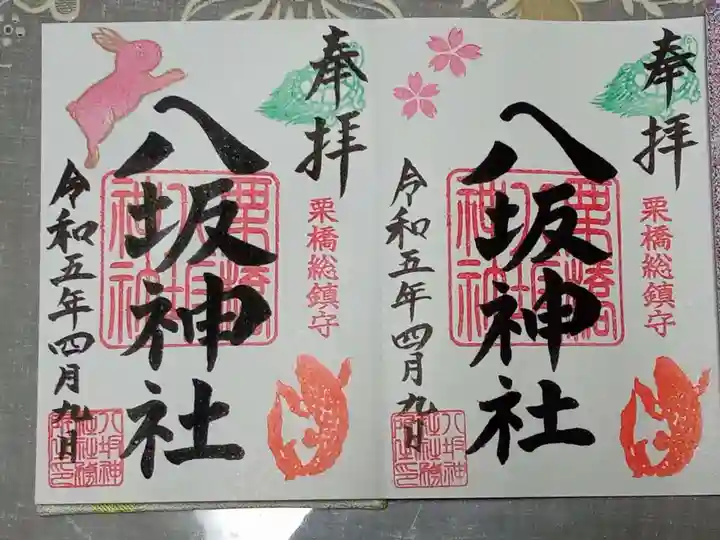 奉拝
栗橋総鎮守
八坂神社
令和五年四月九日
奉拝
栗橋総鎮守
八坂神社
令和五年四月九日